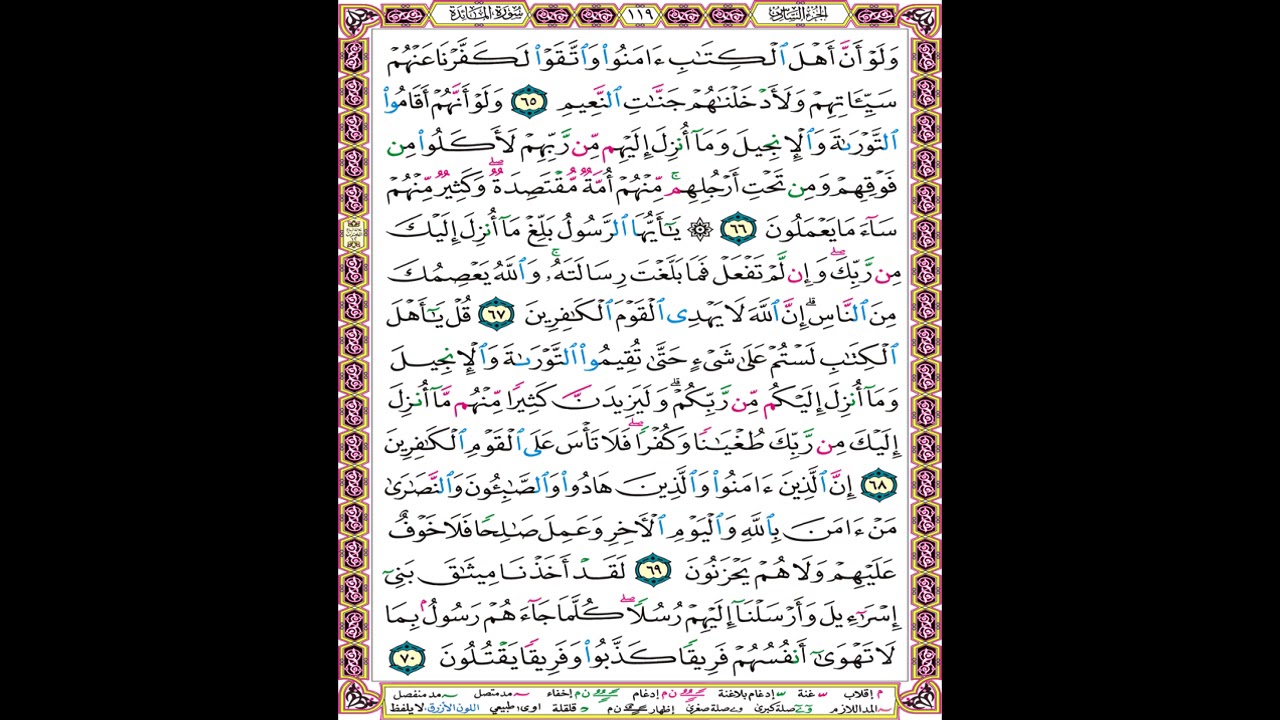 الجزء السادس ١١٩ سورة المائدة
وَلَوْ أَنَّ أَهْلَ ٱلْكِتَٰبِ ءَامَنُوا۟ وَٱتَّقَوْا۟ لَكَفَّرْنَا عَنْهُمْ
سَيِّـَٔاتِهِمْ وَلَأَدْخَلْنَٰهُمْ جَنَّٰتِ ٱلنَّعِيمِ ٦٥ وَلَوْ أَنَّهُمْ أَقَامُوا۟
ٱلتَّوْرَىٰةَ وَٱلْإِنجِيلَ وَمَآ أُنزِلَ إِلَيْهِم مِّن رَّبِّهِمْ لَأَكَلُوا۟ مِن
فَوْقِهِمْ وَمِن تَحْتِ أَرْجُلِهِم ۚ مِّنْهُمْ أُمَّةٌ مُّقْتَصِدَةٌ ۖ وَكَثِيرٌ مِّنْهُمْ
سَآءَ مَا يَعْمَلُونَ ٦٦ ۞ يَٰٓأَيُّهَا ٱلرَّسُولُ بَلِّغْ مَآ أُنزِلَ إِلَيْكَ
مِن رَّبِّكَ ۖ وَإِن لَّمْ تَفْعَلْ فَمَا بَلَّغْتَ رِسَالَتَهُۥ ۚ وَٱللَّهُ يَعْصِمُكَ
مِنَ ٱلنَّاسِ ۗ إِنَّ ٱللَّهَ لَا يَهْدِى ٱلْقَوْمَ ٱلْكَٰفِرِينَ ٦٧ قُلْ يَٰٓأَهْلَ
ٱلْكِتَٰبِ لَسْتُمْ عَلَىٰ شَىْءٍ حَتَّىٰ تُقِيمُوا۟ ٱلتَّوْرَىٰةَ وَٱلْإِنجِيلَ
وَمَآ أُنزِلَ إِلَيْكُم مِّن رَّبِّكُمْ ۗ وَلَيَزِيدَنَّ كَثِيرًا مِّنْهُم مَّآ أُنزِلَ
إِلَيْكَ مِن رَّبِّكَ طُغْيَٰنًا وَكُفْرًا ۖ فَلَا تَأْسَ عَلَى ٱلْقَوْمِ ٱلْكَٰفِرِينَ
٦٨ إِنَّ ٱلَّذِينَ ءَامَنُوا۟ وَٱلَّذِينَ هَادُوا۟ وَٱلصَّٰبِـُٔونَ وَٱلنَّصَٰرَىٰ
مَنْ ءَامَنَ بِٱللَّهِ وَٱلْيَوْمِ ٱلْءَاخِرِ وَعَمِلَ صَٰلِحًا فَلَا خَوْفٌ
عَلَيْهِمْ وَلَا هُمْ يَحْزَنُونَ ٦٩ لَقَدْ أَخَذْنَا مِيثَٰقَ بَنِىٓ
إِسْرَٰٓءِيلَ وَأَرْسَلْنَآ إِلَيْهِمْ رُسُلًا ۖ كُلَّمَا جَآءَهُمْ رَسُولٌۢ بِمَا
لَا تَهْوَىٰٓ أَنفُسُهُمْ فَرِيقًا كَذَّبُوا۟ وَفَرِيقًا يَقْتُلُونَ ٧٠
م إقلاب غنة إدغام بلاغنة ن م إدغام ن م إخفاء مد متصل مد منفصل
المد اللازم صلة كبرى صلة صغرى إظهار ن م قلقلة اوى: طبيعي اللون الأزرق: لا يلفظ